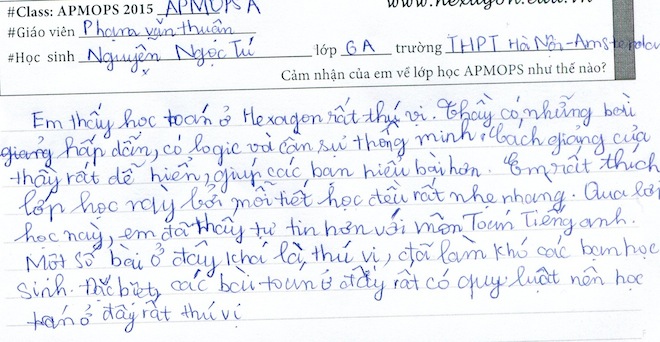 #Class: APMOPS 2015 APMOPS A
www.hexagon.edu.vn
#Giáo viên Phạm văn thuận
#Học sinh Nguyễn Ngọc Tú lớp 6A trường THPT Hà Nội-Amsterdam
Cảm nhận của em về lớp học APMOPS như thế nào?
Em thấy học toán ở Hexagon rất thú vị. Thầy có những bài
giảng hấp dẫn, có logic và cần sự thông minh. Cách giảng của
thầy rất dễ hiển, giúp các bạn hiểu bài hơn. Em rất thích
lớp học này bởi mỗi tiết học đều rất nhẹ nhàng. Qua lớp
học này, em đã thấy tự tin hơn với môn Toán Tiếng anh.
Một số bài ở đây khá lạ, thú vị, đã làm khó các bạn học
sinh. Đặc biệt, các bài toán ở đây rất có quy luật nên học
toán ở đây rất thú vị